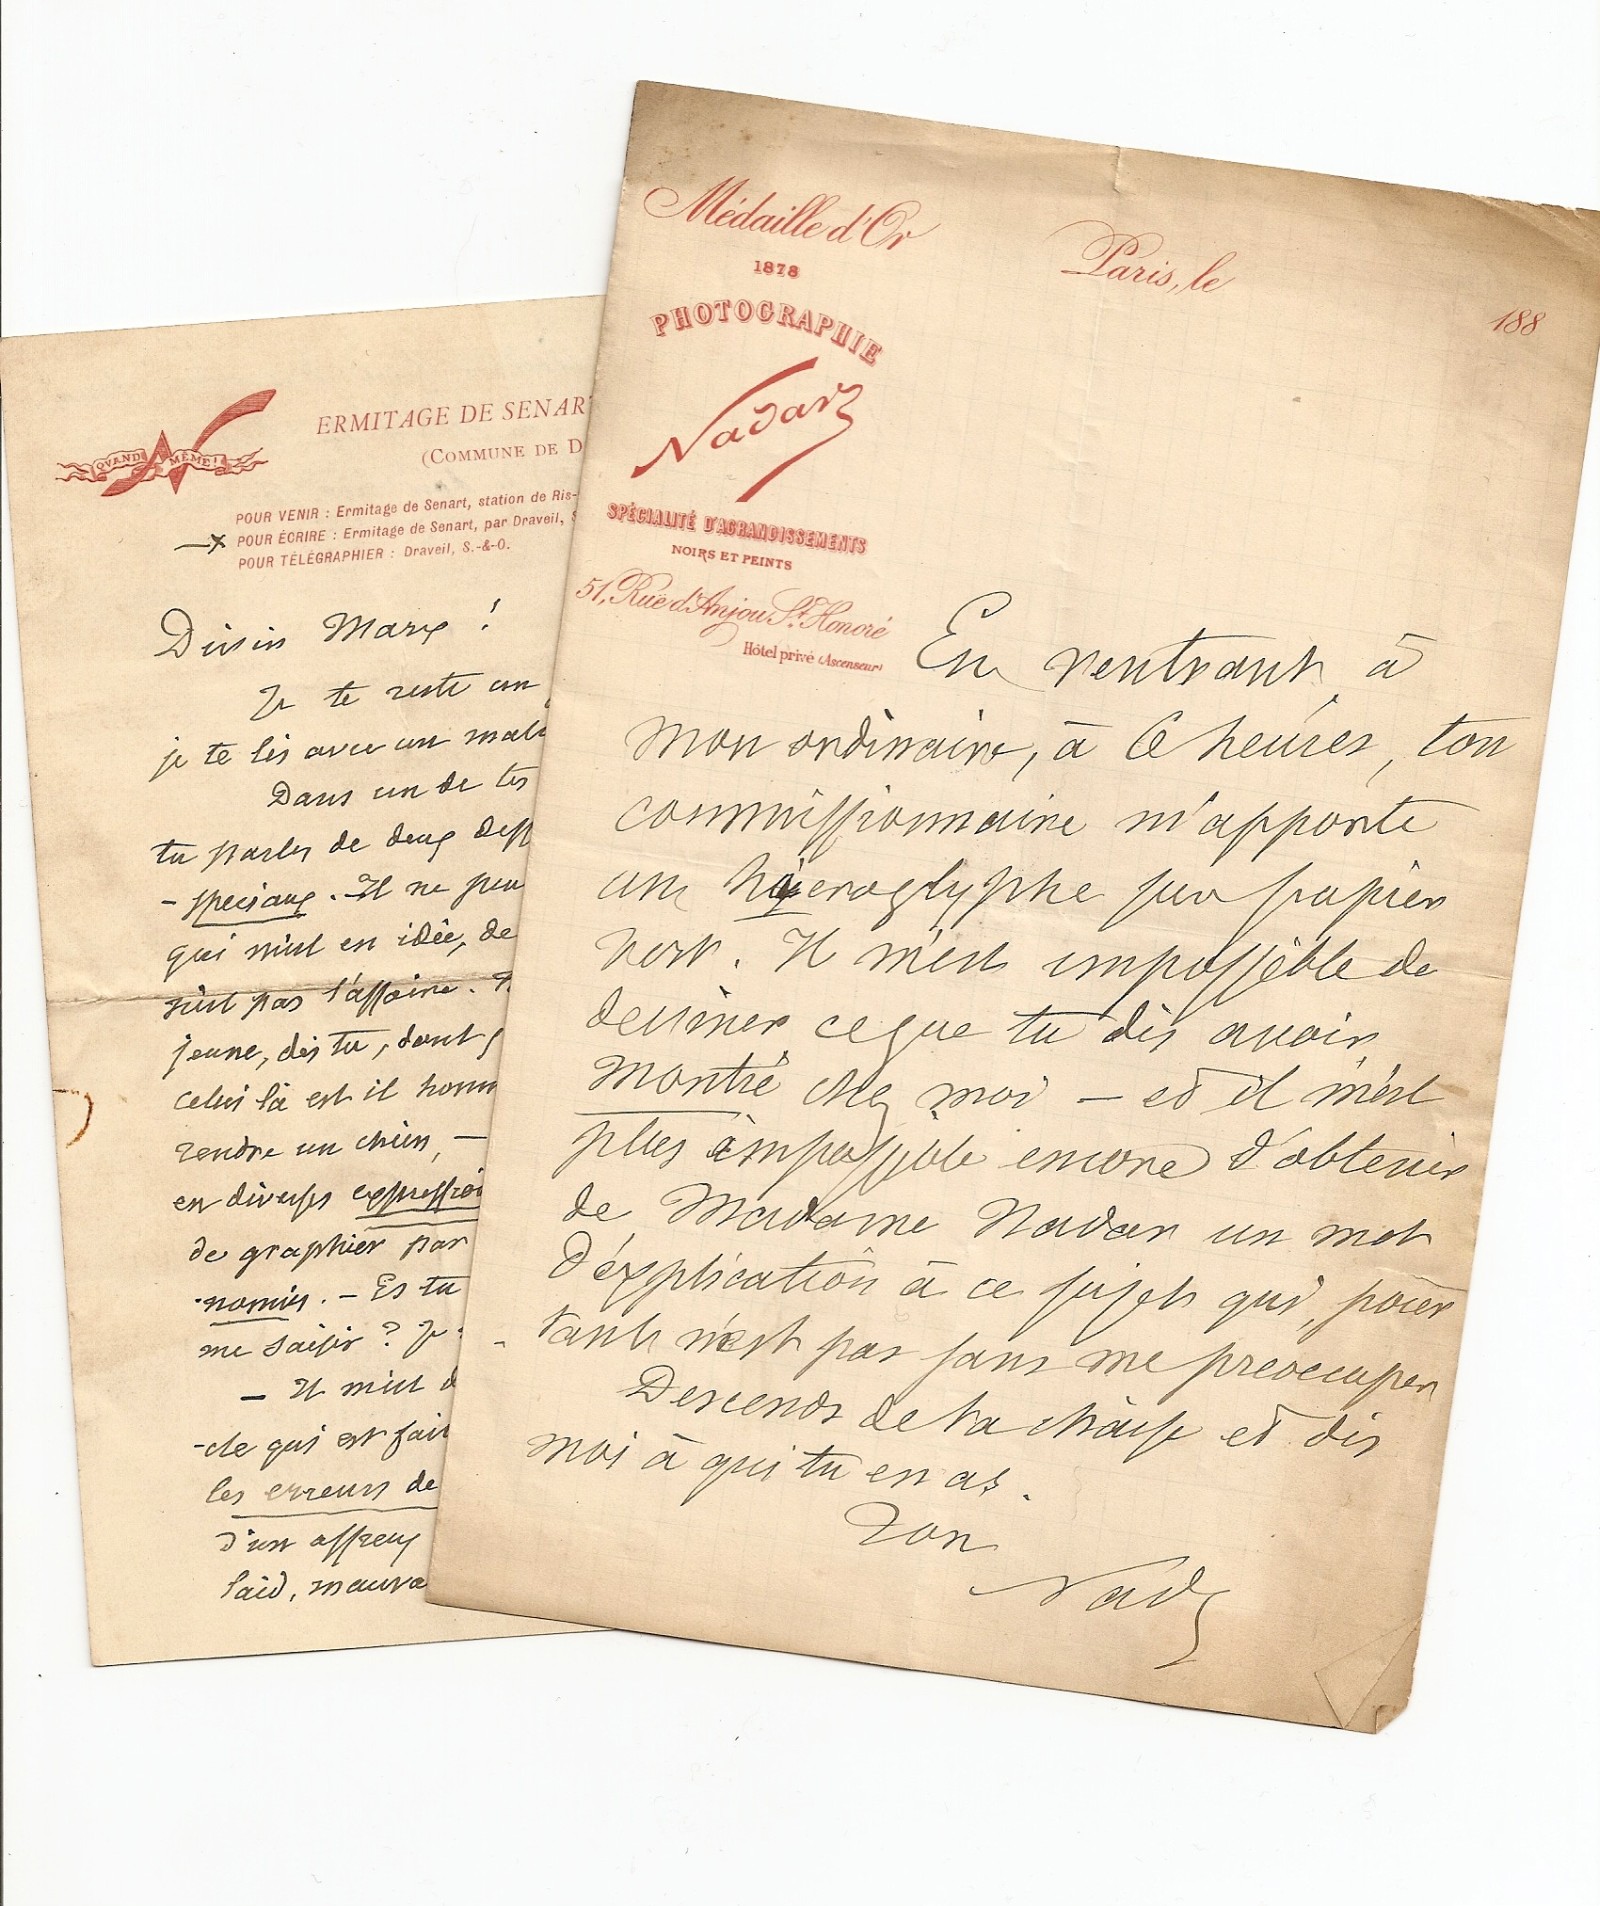 QUAND MÊME!
ERMITAGE DE SENAR
(COMMUNE DE D
POUR VENIR : Ermitage de Senart, station de Ris-
POUR ÉCRIRE : Ermitage de Senart, par Draveil, S
POUR TÉLÉGRAPHIER : Draveil, S.-&-O.
Divin Marx !
Je te reste un
je te lis avec un mali
Dans un de tes
tu parles de deux dess
- speciaux. - Il ne peu
qui m'est en idée, de
n'est pas l'affaire.
jeune, dis tu, dont
celui là est il homm
rendre un chien, -
en diverses expressio
de graphier par
nomies. - Es tu
me saisir ? Je
- Il m'est d
-cle qui est fait
les erreurs de
d'un affreux
laid, mauva
Médaille d'Or
1878
PHOTOGRAPHIE
Nadar
SPÉCIALITÉ D'AGRANDISSEMENTS
NOIRS ET PEINTS
51, Rue d'Anjou St. Honoré
Hôtel privé (Ascenseur)
Paris, le
188
En rentrant, à
mon ordinaire, à 6 heures, ton
commissionnaire m'apporte
un hyeroglyphe sur papier
vert. Il m'est impossible de
deviner ce que tu dis avoir
montré chez moi - et il m'est
plus impossible encore d'obtenir
de Madame Nadar un mot
d'explication à ce sujet qui, pour
- tant n'est pas sans me preoccuper
Descends de ta chaise et dis
moi à qui tu en as.
Ton
Nadar